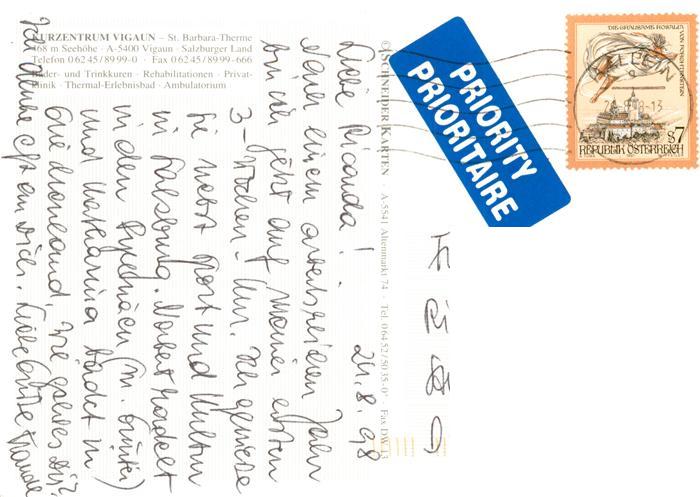 KURZENTRUM VIGAUN – St. Barbara-Therme
468 m Seehöhe · A-5400 Vigaun · Salzburger Land
Telefon 0 62 45 / 89 99-0 · Fax 0 62 45 / 89 99-666
Bäder- und Trinkkuren · Rehabilitationen · Privat-
klinik · Thermal-Erlebnisbad · Ambulatorium
© SCHNEIDER KARTEN · A-5541 Altenmarkt 74 · Tel. 0 64 52 / 5035-0 · Fax DW 13
PRIORITY
PRIORITAIRE
DIE GRAUSAME ROSALIA
VON FORCHTENSTEIN
S7
REPUBLIK ÖSTERREICH
24.8.98
Liebe Ricarda!
Nach einem arbeitsreichen Jahr
bin ich jetzt auf meiner ersten
3-Wochen-Kur. Ich genieße
sie nebst Sport und Kultur
in Salzburg. Norbert radelt
in den
und Katharina badet in
Wie geht es Dir?
Ich denke oft an Dich. Liebe Grüße
Fr
Ri
D